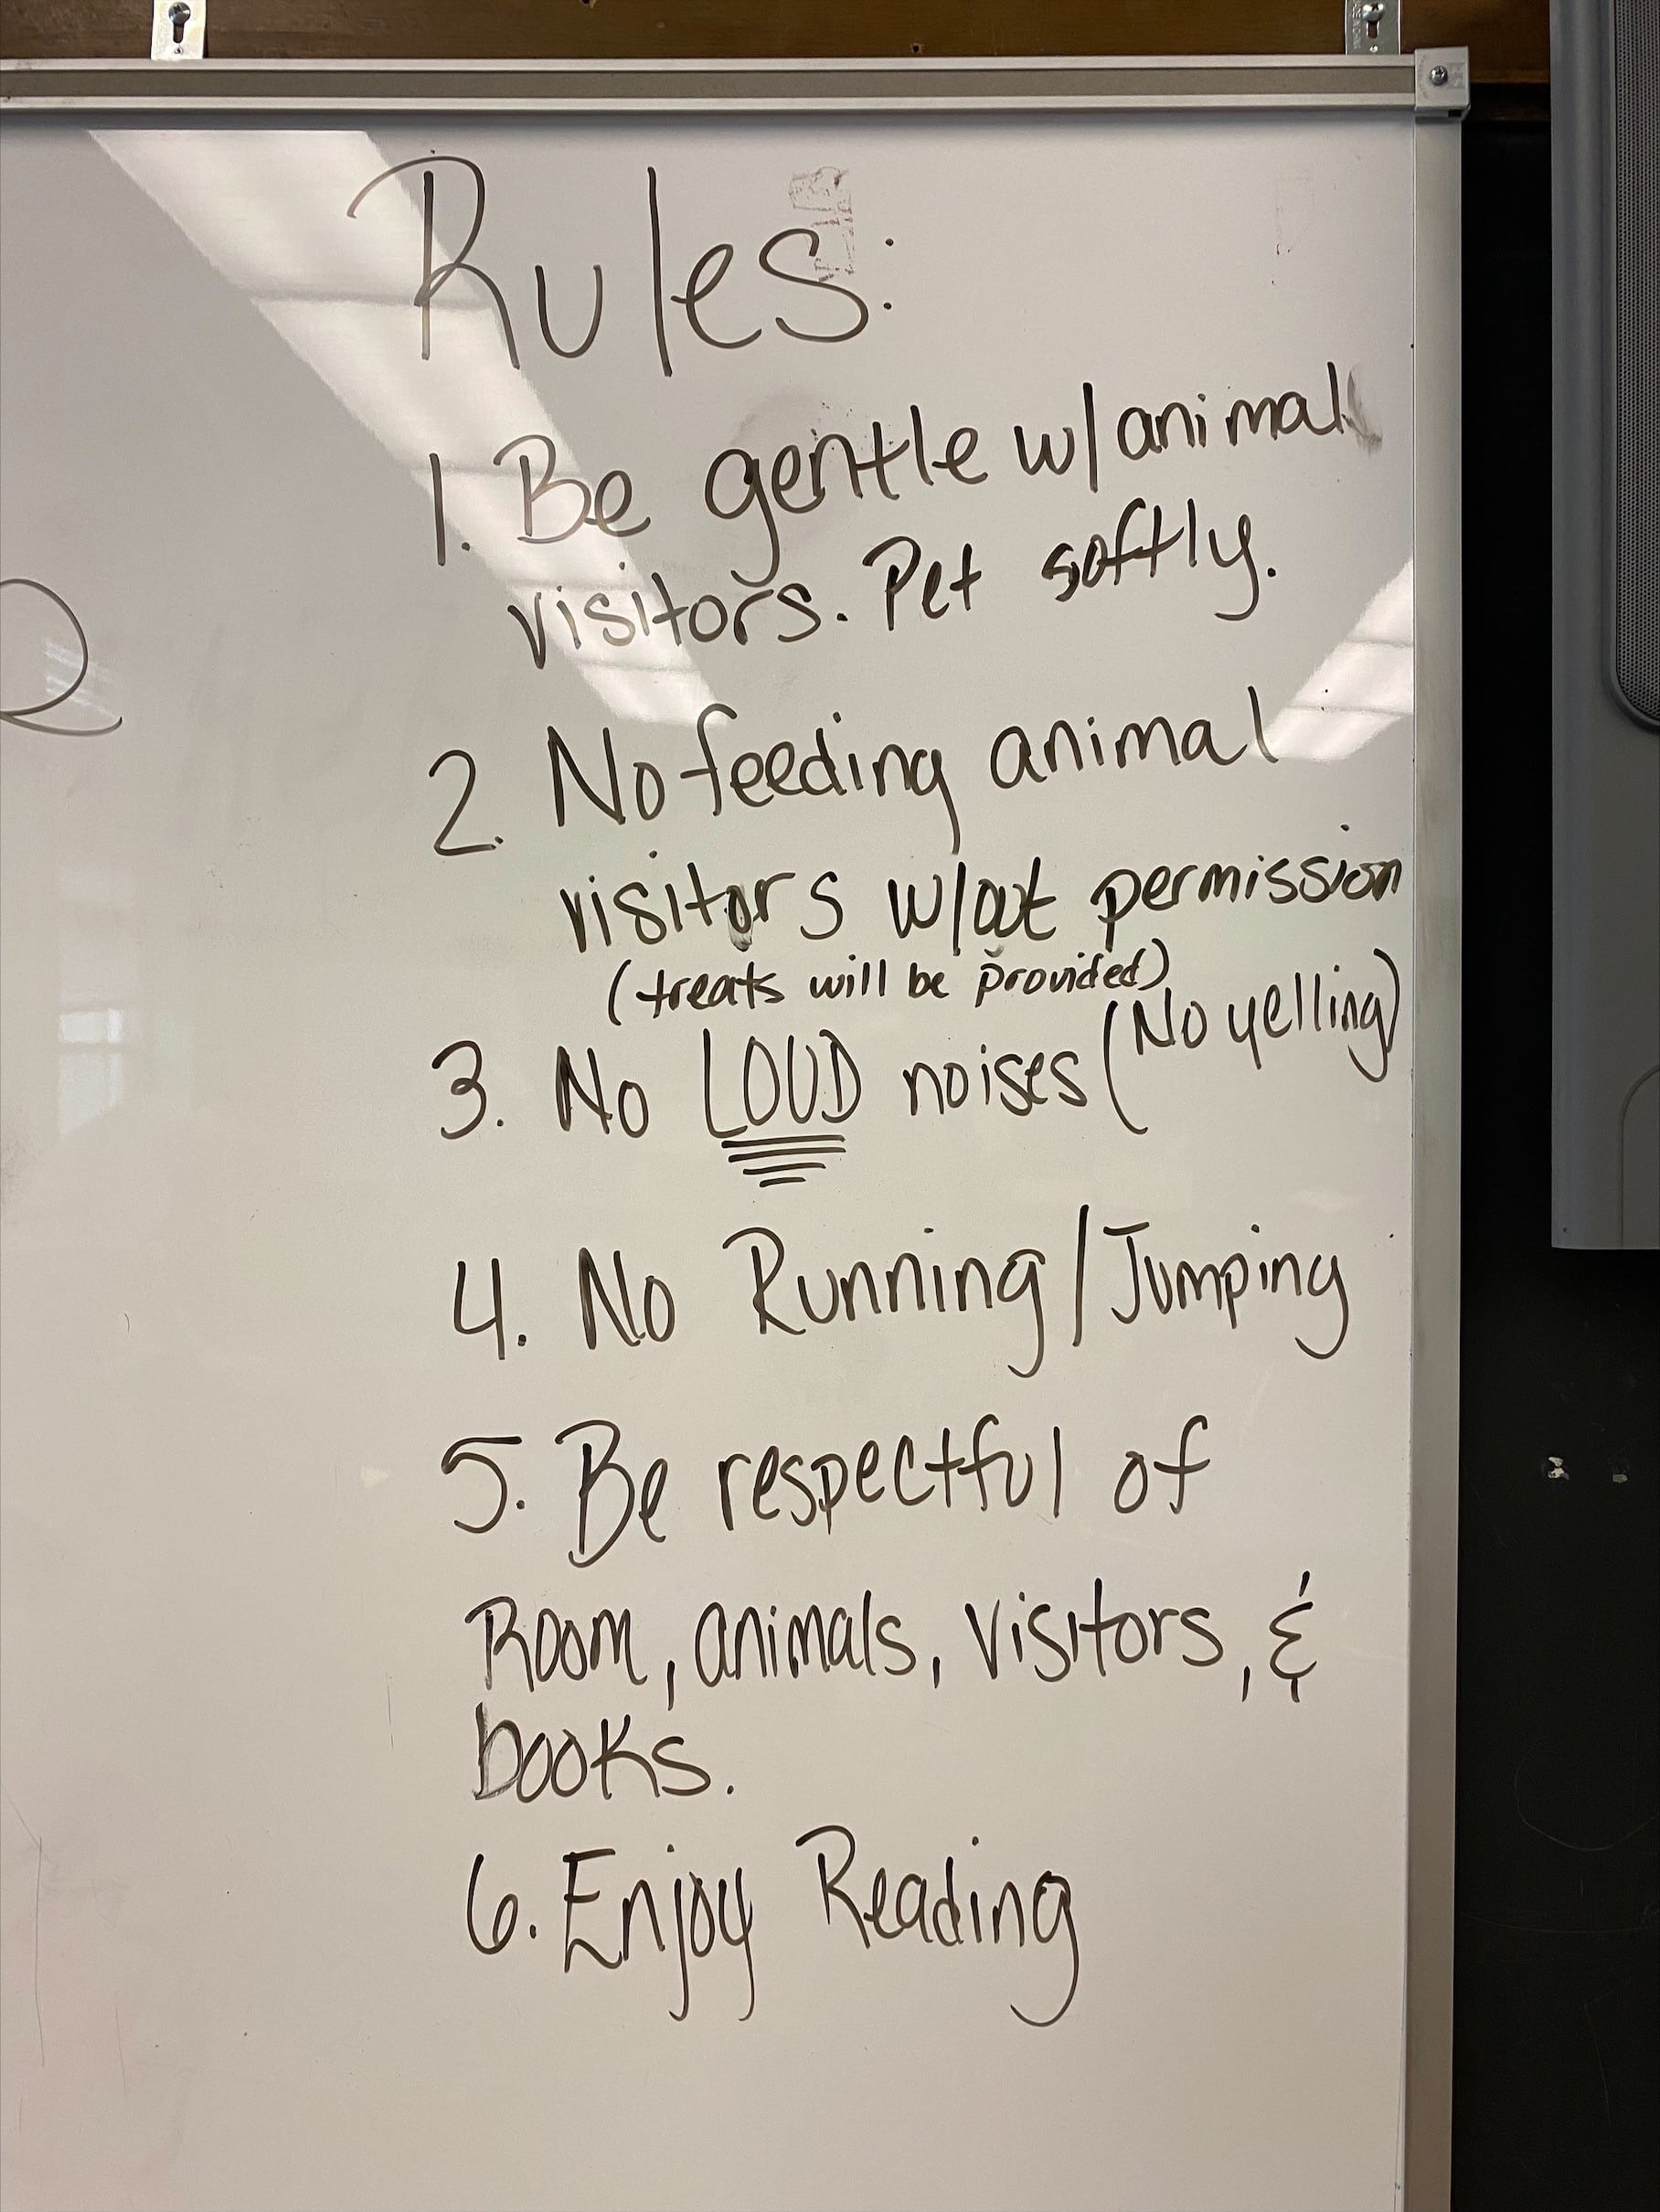 Rules:
1. Be gentle w/ animal
visitors. Pet softly.
2. No feeding animal
visitors w/out permission
(treats will be provided)
3. No LOUD noises (No yelling)
4. No Running/Jumping
5. Be respectful of
Room, animals, visitors, &
books.
6. Enjoy Reading